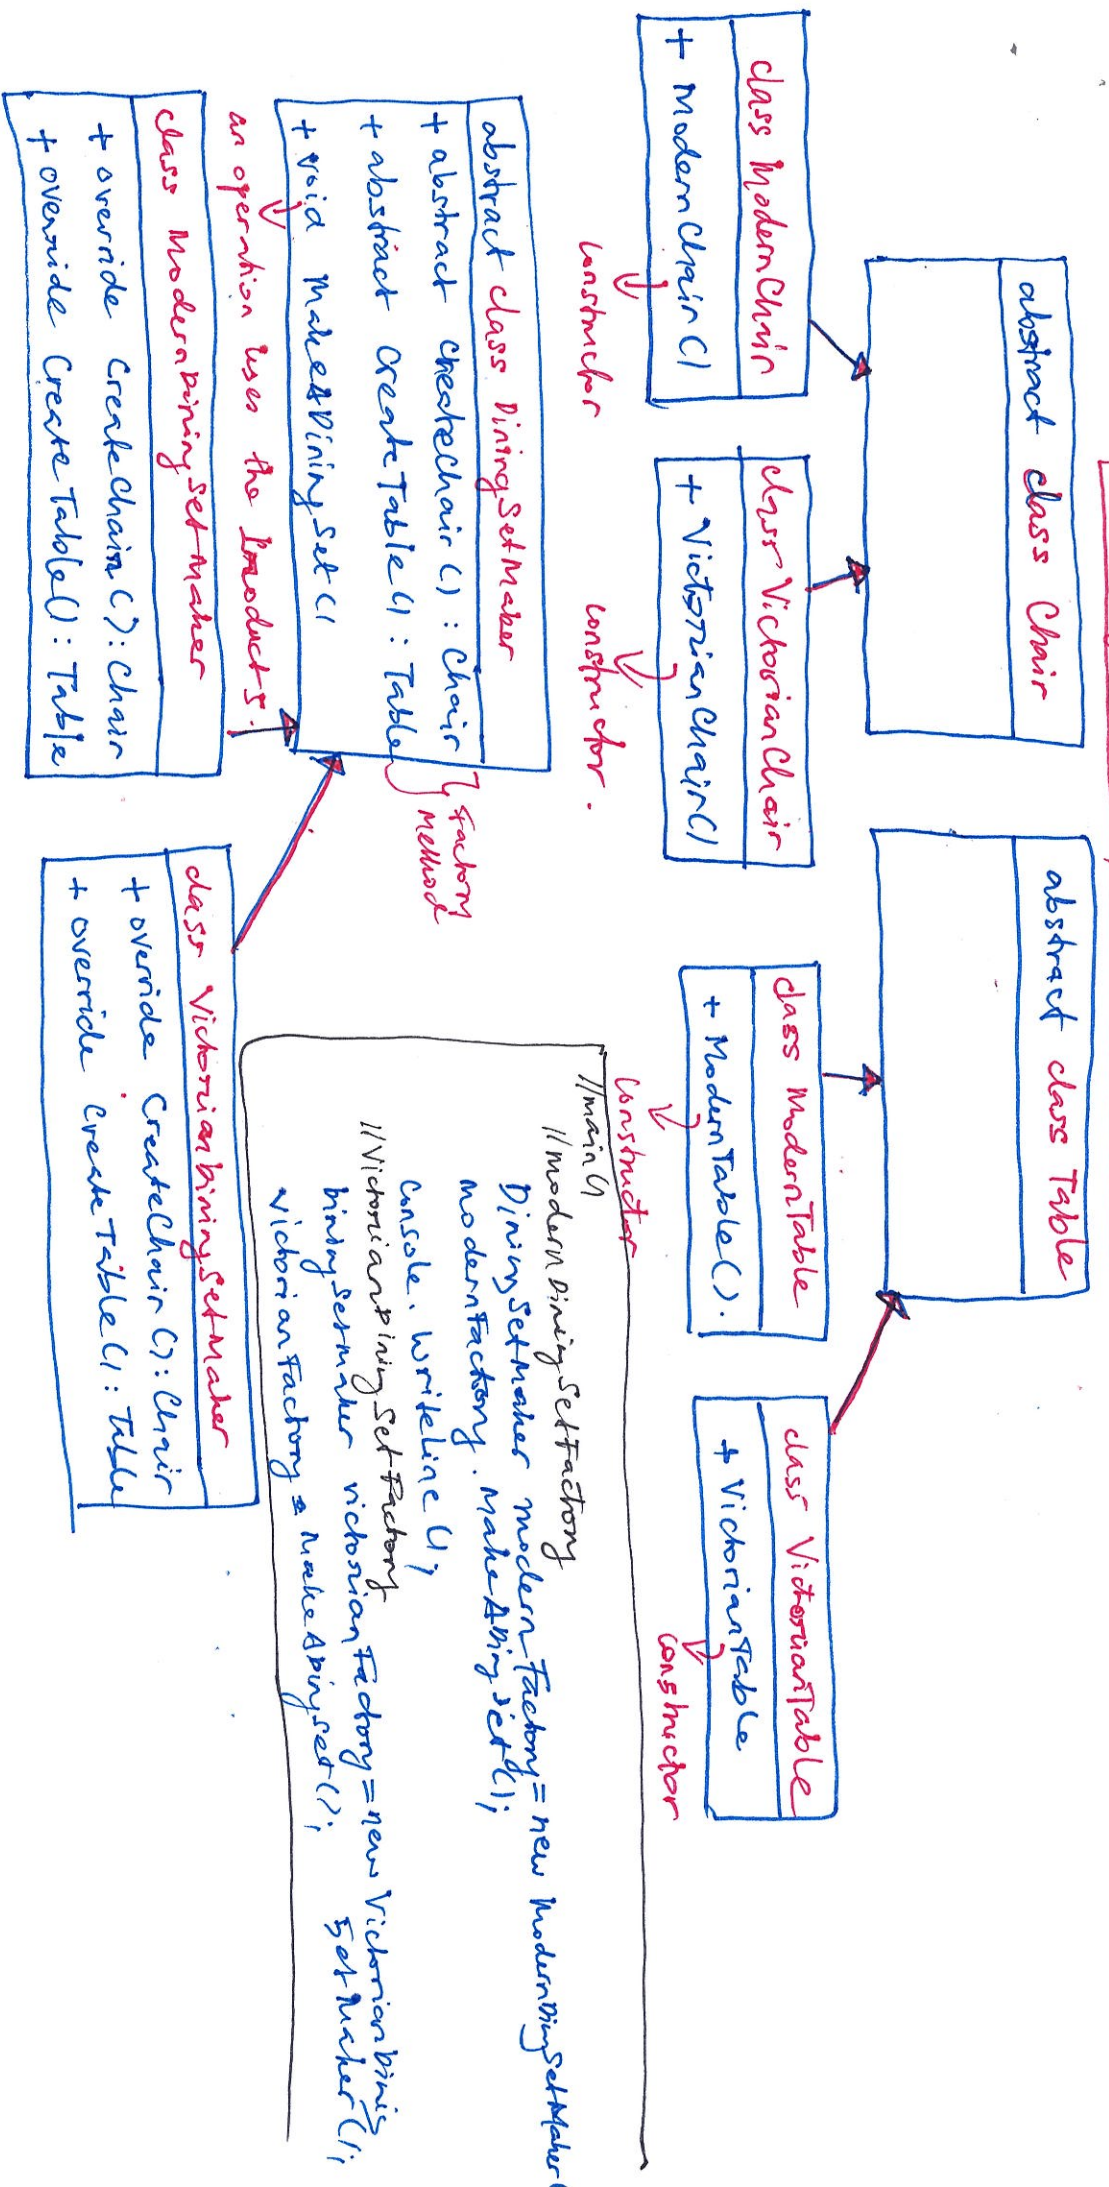 abstract class Chair
abstract class Table
class ModernChair
+ ModernChair()
constructor
class VictorianChair
+ VictorianChair()
constructor.
class ModernTable
+ ModernTable().
constructor
class VictorianTable
+ VictorianTable
constructor
abstract class DiningSetMaker
+ abstract CreateChair() : Chair
+ abstract CreateTable() : Table
+ void MakeADiningSet()
Factory
Method
an operation uses the Products.
class ModernDiningSetMaker
+ override CreateChair() : Chair
+ override CreateTable() : Table
class VictorianDiningSetMaker
+ override CreateChair() : Chair
+ override CreateTable() : Table
//main()
//ModernDiningSetFactory
DiningSetMaker modernFactory = new ModernDiningSetMaker(
modernFactory.MakeADiningSet();
Console.WriteLine();
//VictorianDiningSetFactory
DiningSetMaker victorianFactory = new VictorianDining
SetMaker();
victorianFactory.MakeADiningSet();